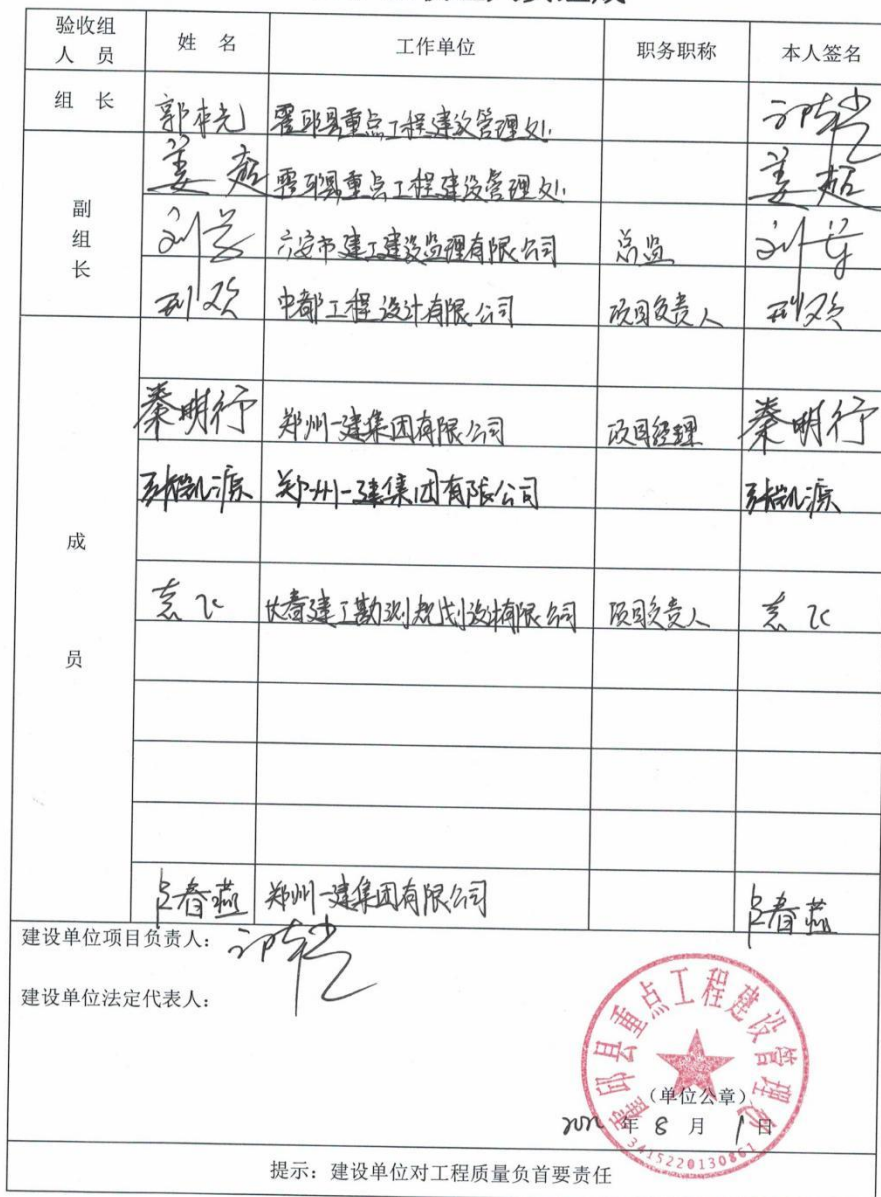 验收组人员 姓 名 工作单位 职务职称 本人签名
组 长 郭本光 霍邱县重点工程建设管理处
副组长 姜超 霍邱县重点工程建设管理处 姜超
六安市建工建设监理有限公司 总监
邢欢 中都工程设计有限公司 项目负责人 邢欢
成员
秦明行 郑州一建集团有限公司 项目经理 秦明行
郑州一建集团有限公司
长春建工勘测规划设计有限公司 项目负责人
春燕 郑州一建集团有限公司 春燕
建设单位项目负责人:
建设单位法定代表人:
霍邱县重点工程建设管理处
(单位公章)
2022 年 8 月 1 日
3415220130861
提示：建设单位对工程质量负首要责任